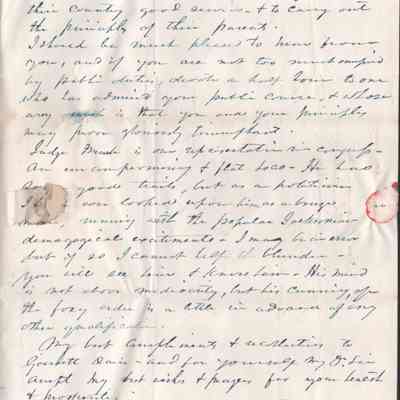 their Country good service & to carry out
the principles of their parents.
I should be much pleased to hear from
you, and if you are not too much occupied
by public duties, devote a half hour to one
who has admired your public course, & whose
is that you and your principles
may prove gloriously triumphant.
Judge is our representative in Congress
An uncompromising & flat loco - He has
some good traits, but as a politician
I looked upon him as a
running with the popular Jacksonian
demagogical excitements - I may be in error
but if so I cannot help it
you will see him & know him - His mind
is not above mediocrity, but his cunning, of
the foxy order is a little in advance of any
other qualification.
My best compliments & to
and for yourself My Dr Sir
accept my best wishes & prayers for your health
& prosperity